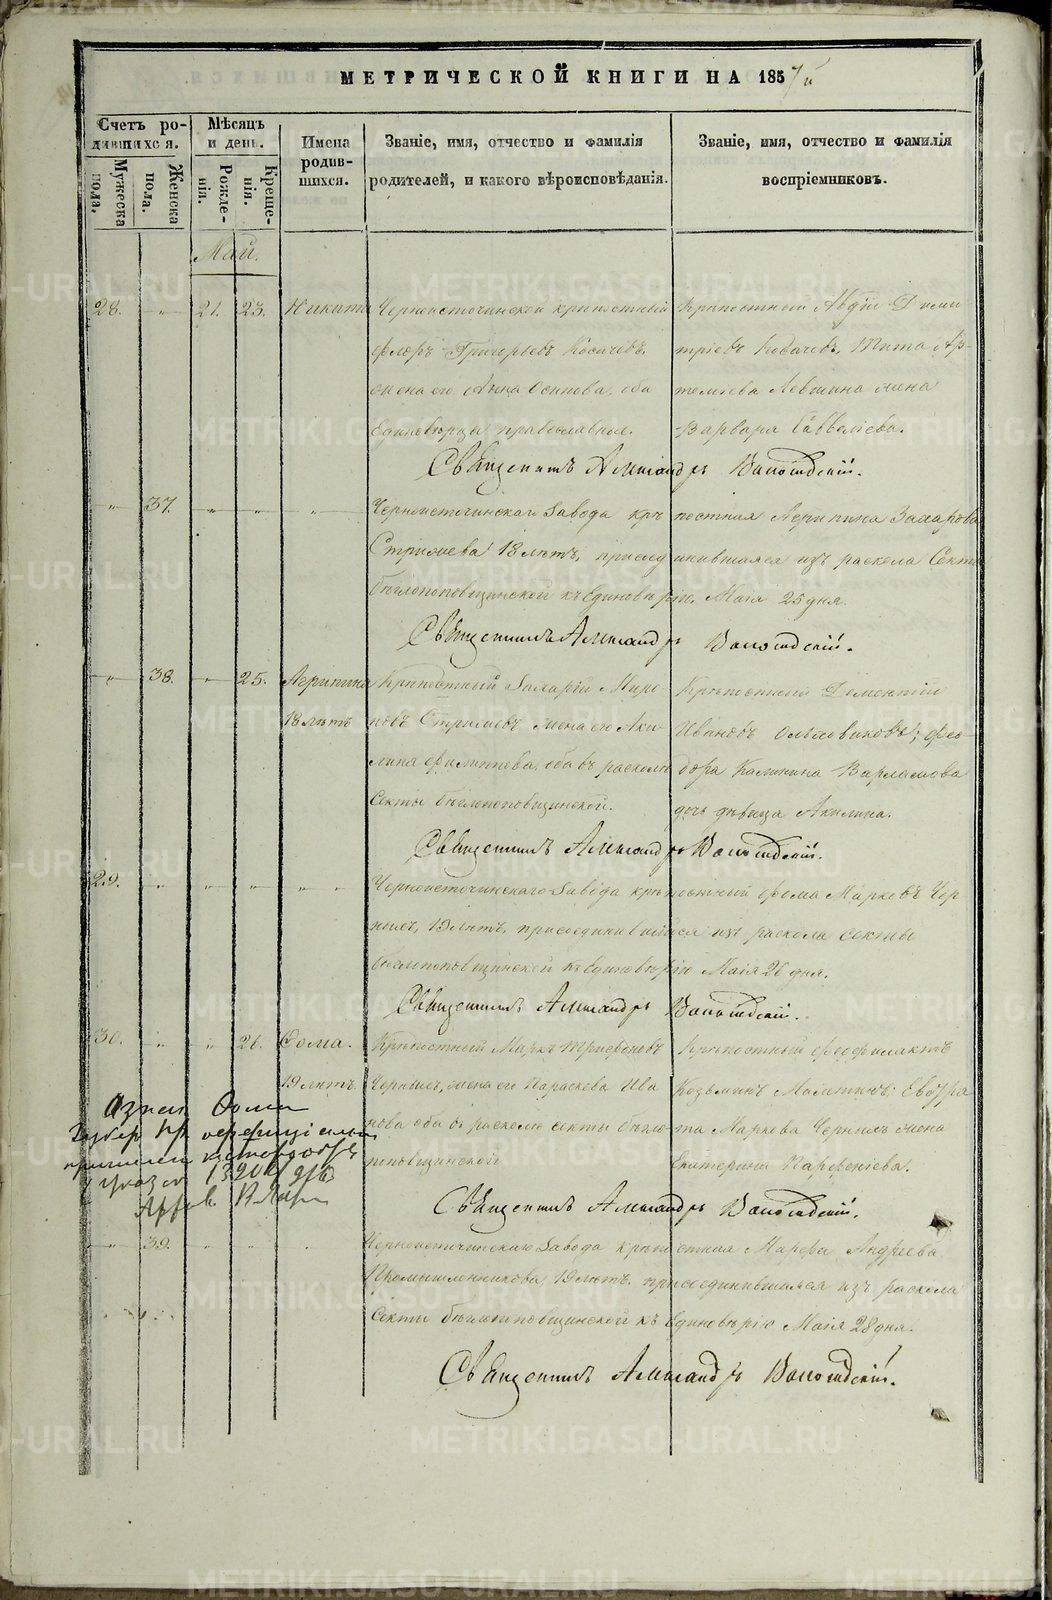 МЕТРИЧЕСКОЙ КНИГИ НА 1857й
Счетъ ро-
дившихся.
Мѣсяцъ
и день.
Имена
родив-
шихся.
Званіе, имя, отчество и фамилія
родителей, и какого вѣроисповѣданія.
Званіе, имя, отчество и фамилія
воспріемниковъ.
Мужеска
пола.
Женска
пола.
Рожде-
нія.
Креще-
нія.
Май.
28. 21. 23. Никита
Черноисточинской крѣпостный
Григорьевъ Косачевъ,
жена его Анна Осипова, оба
Единовѣрцы православные.
Крѣпостный Авдій Дими
тріевъ Косачевъ, Тита Ар-
темьева Левшина жена
Варвара Савельева.
Священникъ Александръ
37.
Черноисточинскаго Завода крѣпостная Агрипина Захарова
Стрижева 18 лѣтъ, присоединившаяся изъ раскола Секты
бѣглопоповщинской къ Единовѣрію, Маія 25 дня.
Священникъ Александръ
38. 25. Агрипина
18 лѣтъ
Крѣпостный Захарій Миро
новъ Стрижевъ, жена его Аки
лина Филиппова, оба въ расколѣ
Секты бѣглопоповщинской.
Крѣпостный Дементій
Ивановъ Ольховиковъ; Фео-
дора Калинина Варламова
дочь дѣвица Акилина.
Священникъ Александръ
29.
Черноисточинскаго Завода крѣпостный Фома Марковъ Чер
ныхъ, 19 лѣтъ, присоединившійся изъ раскола Секты
бѣглопоповщинской къ Единовѣрію Маія 26 дня.
Священникъ Александръ
30. 26. Фома.
19 лѣтъ
Крѣпостный Маркъ Трифоновъ
Черныхъ, жена его Параскева Ива
нова оба въ расколѣ секты бѣгло
поповщинской
Крѣпостный Феофилактъ
Козьминъ Малыгинъ; Евгра
та Маркова Черныхъ жена
Екатерина Парфеніева.
Священникъ Александръ
39.
Черноисточинскаго Завода крѣпостная Марфа Андреева
Промышленникова, 19 лѣтъ, присоединившаяся изъ раскола
Секты бѣглопоповщинской къ Единовѣрію Маія 28 дня.
Священникъ Александръ
METRIKI.GASO-URAL.RU